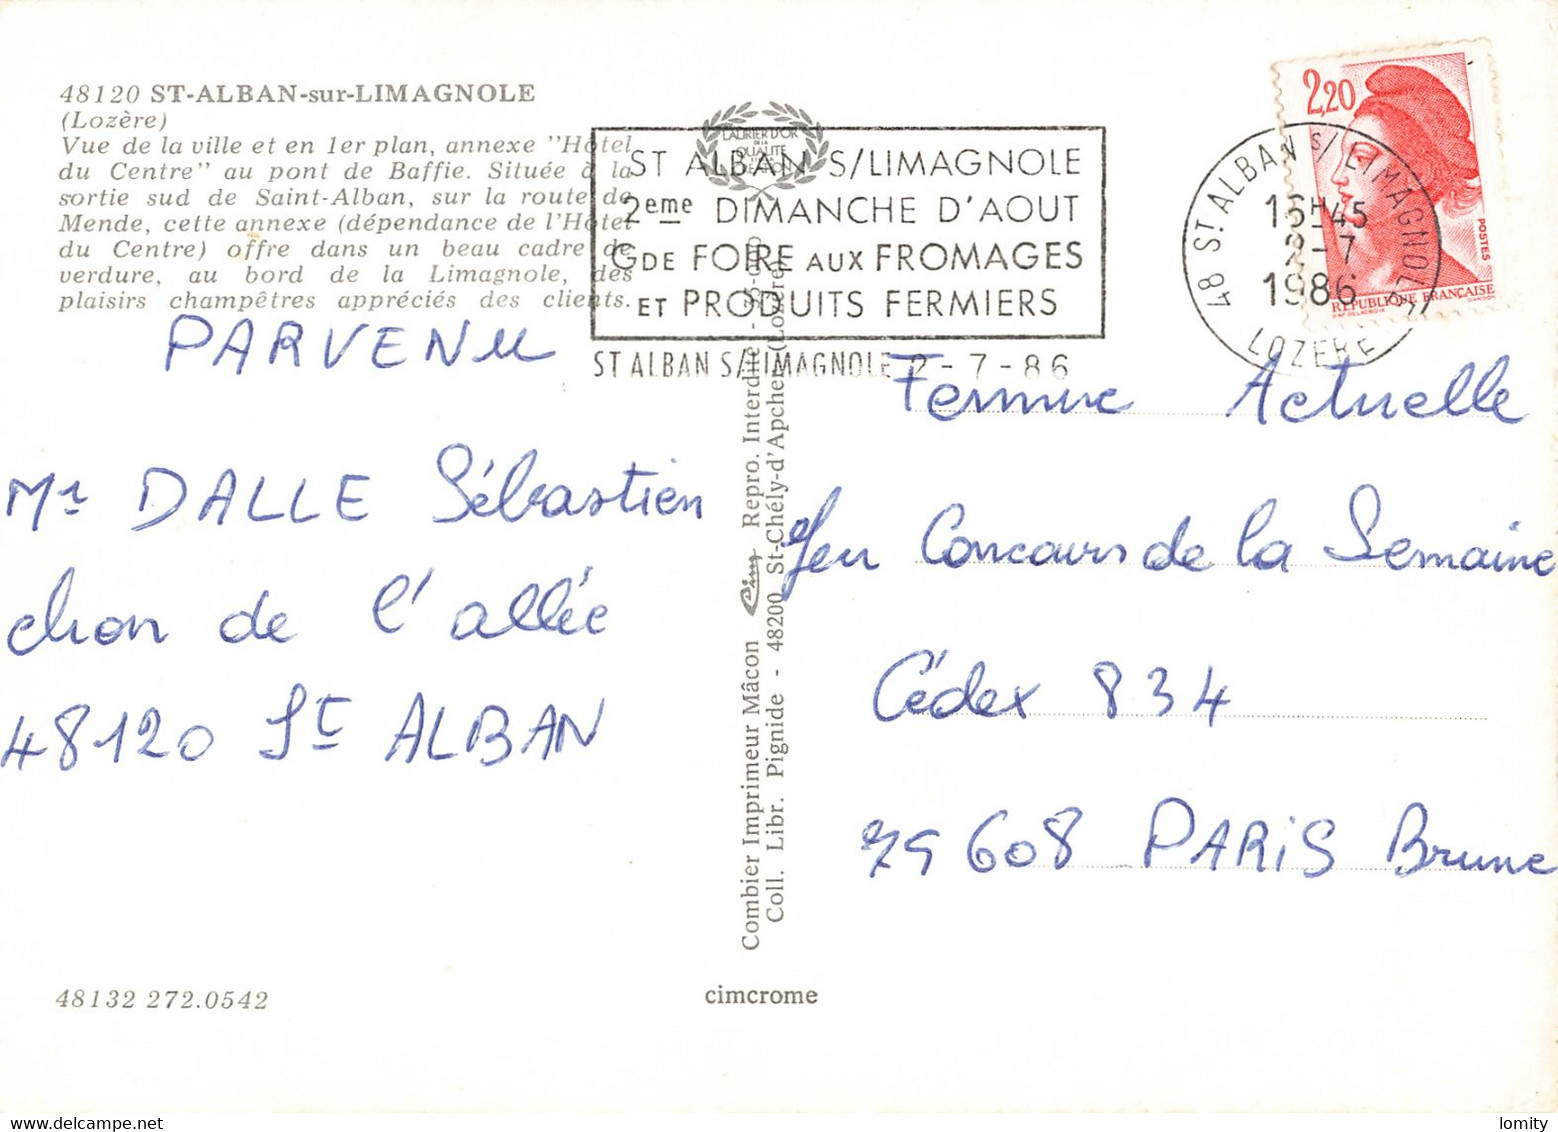 48120 ST-ALBAN-sur-LIMAGNOLE
(Lozère)
Vue de la ville et en 1er plan, annexe "Hôtel
du Centre" au pont de Baffie. Située à la
sortie sud de Saint-Alban, sur la route de
Mende, cette annexe (dépendance de l'Hôtel
du Centre) offre dans un beau cadre de
verdure, au bord de la Limagnole, des
plaisirs champêtres appréciés des clients.
PARVENU
Mr DALLE Sébastien
chon de l'allée
48120 St ALBAN
48132 272.0542
LAURIER D'OR
DE LA
QUALITÉ
ST ALBAN S/LIMAGNOLE
2eme DIMANCHE D'AOUT
GDE FOIRE AUX FROMAGES
ET PRODUITS FERMIERS
ST ALBAN S/LIMAGNOLE 2-7-86
Combier Imprimeur Mâcon Cim Repro. Interdite
Coll. Libr. Pignide - 48200 St-Chély-d'Apcher (Lozère)
cimcrome
2,20
POSTES
REPUBLIQUE FRANÇAISE
48 ST ALBAN S/ LIMAGNOLE
16H45
2-7
1986
LOZERE
Femme Actuelle
Jeu Concours de la Semaine
Cédex 834
75608 PARiS Brune
lomity